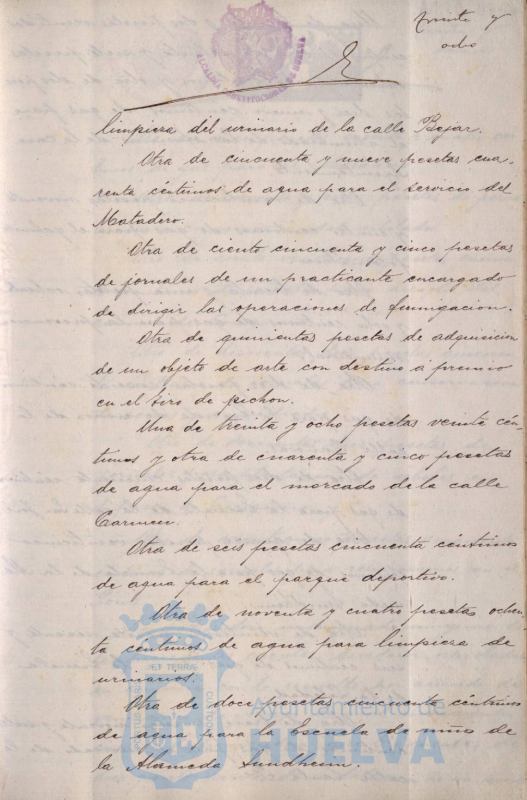 Treinta y
ocho
ALCALDIA CONSTITUCIONAL DE HUELVA
limpieza del urinario de la calle Bejar.
Otra de cincuenta y nueve pesetas cua-
renta céntimos de agua para el servicio del
Matadero.
Otra de ciento cincuenta y cinco pesetas
de jornales de un practicante encargado
de dirigir las operaciones de fumigacion.
Otra de quinientas pesetas de adquisicion
de un objeto de arte con destino á premio
en el tiro de pichon.
Una de treinta y ocho pesetas veinte cén-
timos y otra de cuarenta y cinco pesetas
de agua para el mercado de la calle
Carmen.
Otra de seis pesetas cincuenta céntimos
de agua para el parque deportivo.
Otra de noventa y cuatro pesetas ochen-
ta céntimos de agua para limpieza de
urinarios.
Otra de doce pesetas cincuenta céntimos
de agua para la Escuela de niños de
la Alameda Sundheim.
Ayuntamiento de
HUELVA